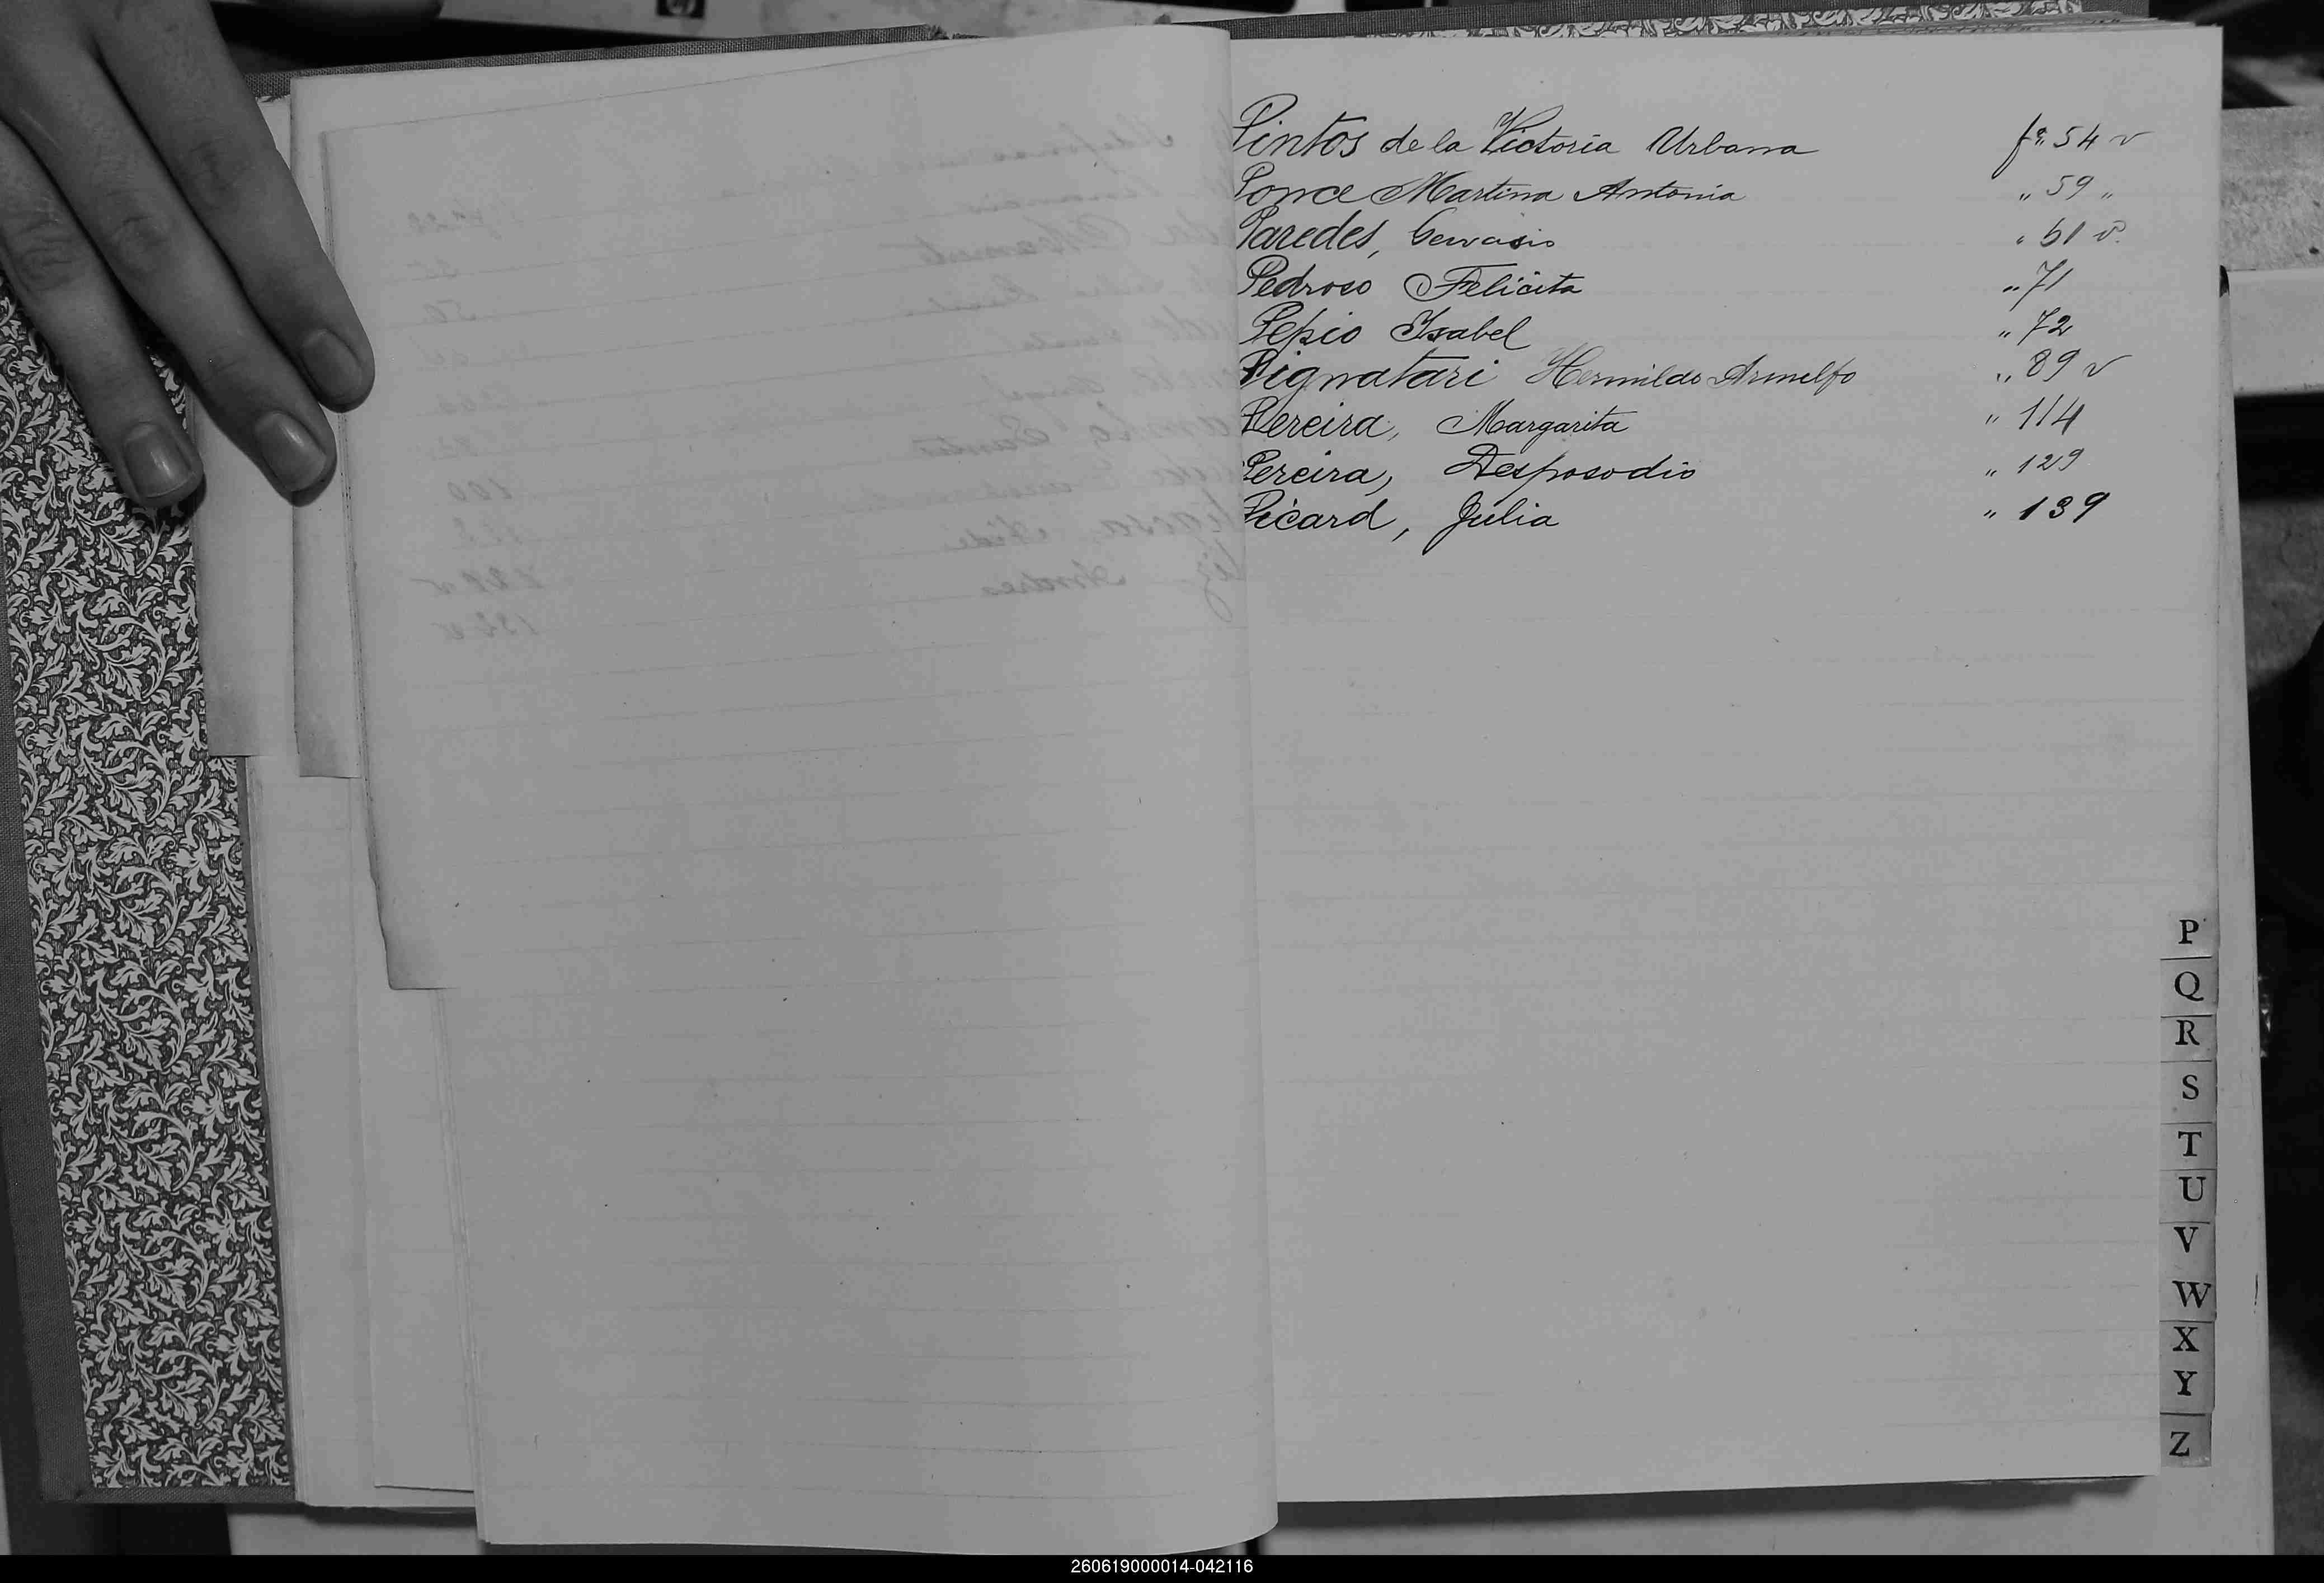 Pintos de la Victoria Urbana fº 54 v
Ponce Martina Antonia " 59 "
Paredes, Gervasio " 61 v.
Pedroso Felicita " 71
Pepio Isabel " 72
Pignatari Hermildo Arnulfo " 89 v
Pereira, Margarita " 114
Pereira, Desposodio " 129
Picard, Julia " 139
P
Q
R
S
T
U
V
W
X
Y
Z
260619000014-042116